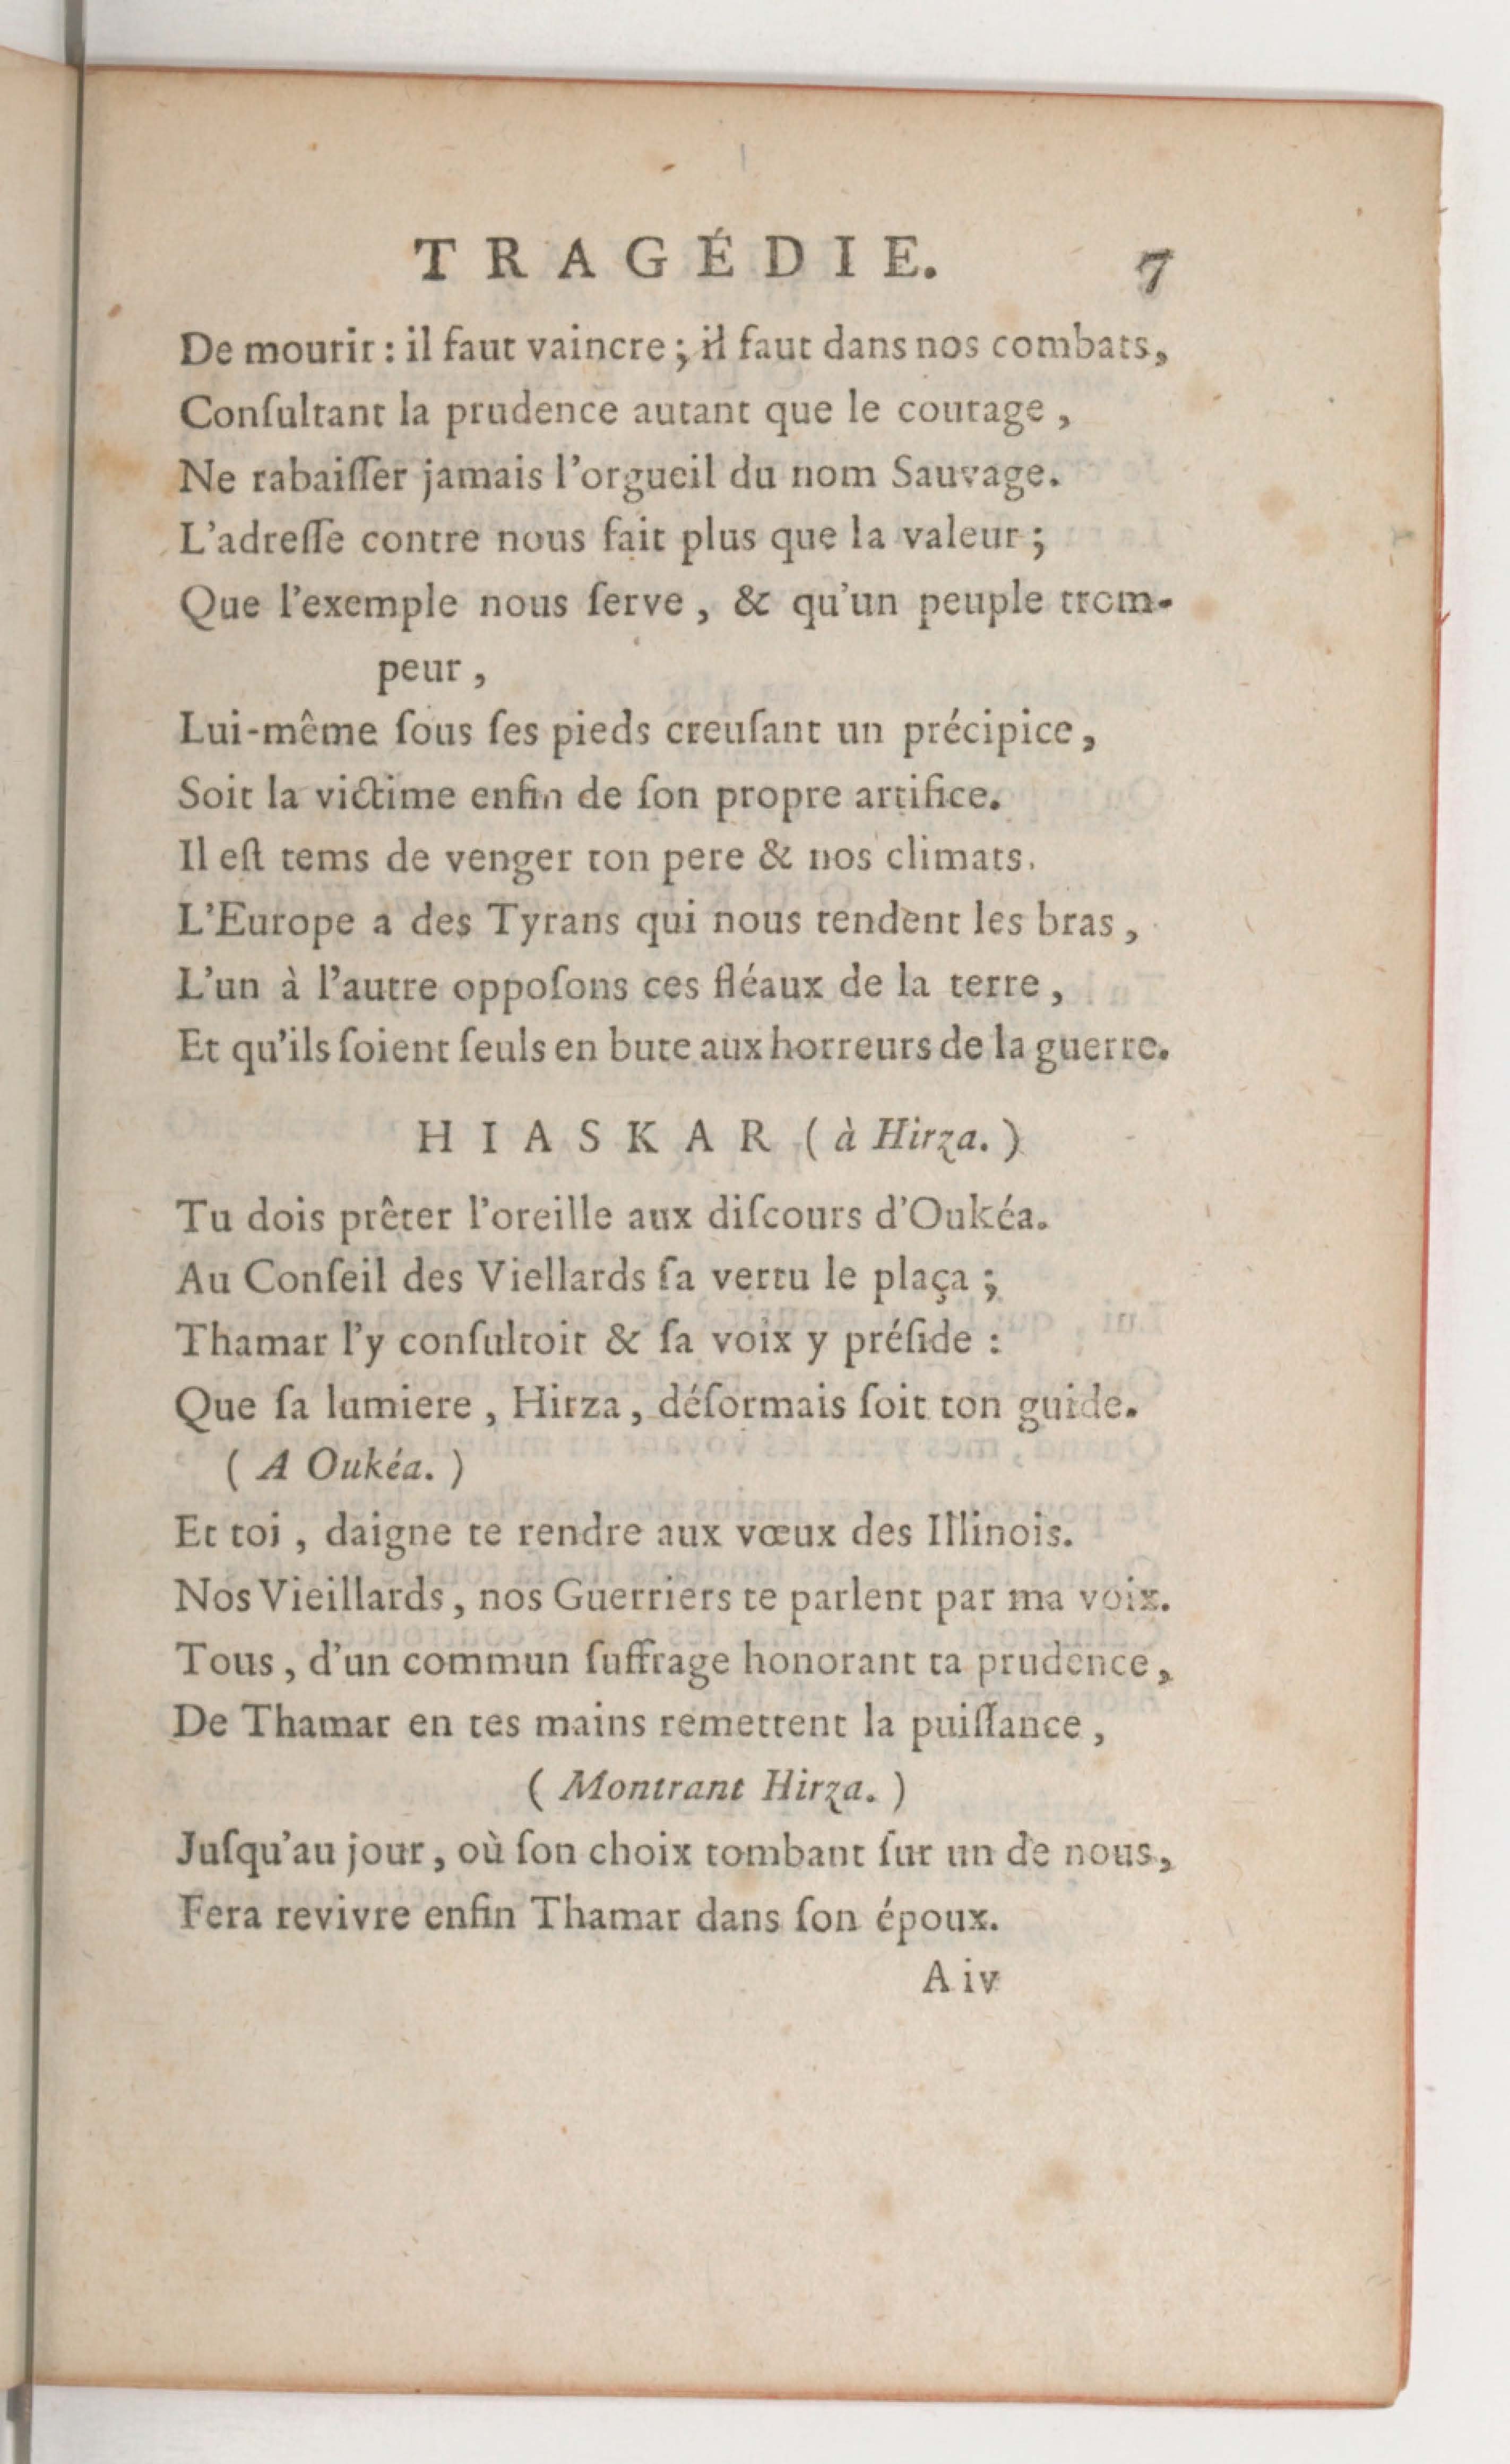 TRAGÉDIE. 7
De mourir : il faut vaincre ; il faut dans nos combats,
Conſultant la prudence autant que le courage ,
Ne rabaiſſer jamais l'orgueil du nom Sauvage.
L'adreſſe contre nous fait plus que la valeur ;
Que l'exemple nous ſerve , & qu'un peuple trom-
peur ,
Lui-même ſous ſes pieds creuſant un précipice ,
Soit la victime enfin de ſon propre artifice.
Il eſt tems de venger ton pere & nos climats.
L'Europe a des Tyrans qui nous tendent les bras ,
L'un à l'autre oppoſons ces fléaux de la terre ,
Et qu'ils ſoient ſeuls en bute aux horreurs de la guerre.
HIASKAR ( à Hirza. )
Tu dois prêter l'oreille aux diſcours d'Oukéa.
Au Conſeil des Viellards ſa vertu le plaça ;
Thamar l'y conſultoit & ſa voix y préſide :
Que ſa lumiere , Hirza , déſormais ſoit ton guide.
( A Oukéa. )
Et toi , daigne te rendre aux vœux des Illinois.
Nos Vieillards , nos Guerriers te parlent par ma voix.
Tous , d'un commun ſuffrage honorant ta prudence ,
De Thamar en tes mains remettent la puiſſance ,
( Montrant Hirza. )
Juſqu'au jour , où ſon choix tombant ſur un de nous ,
Fera revivre enfin Thamar dans ſon époux.
A iv